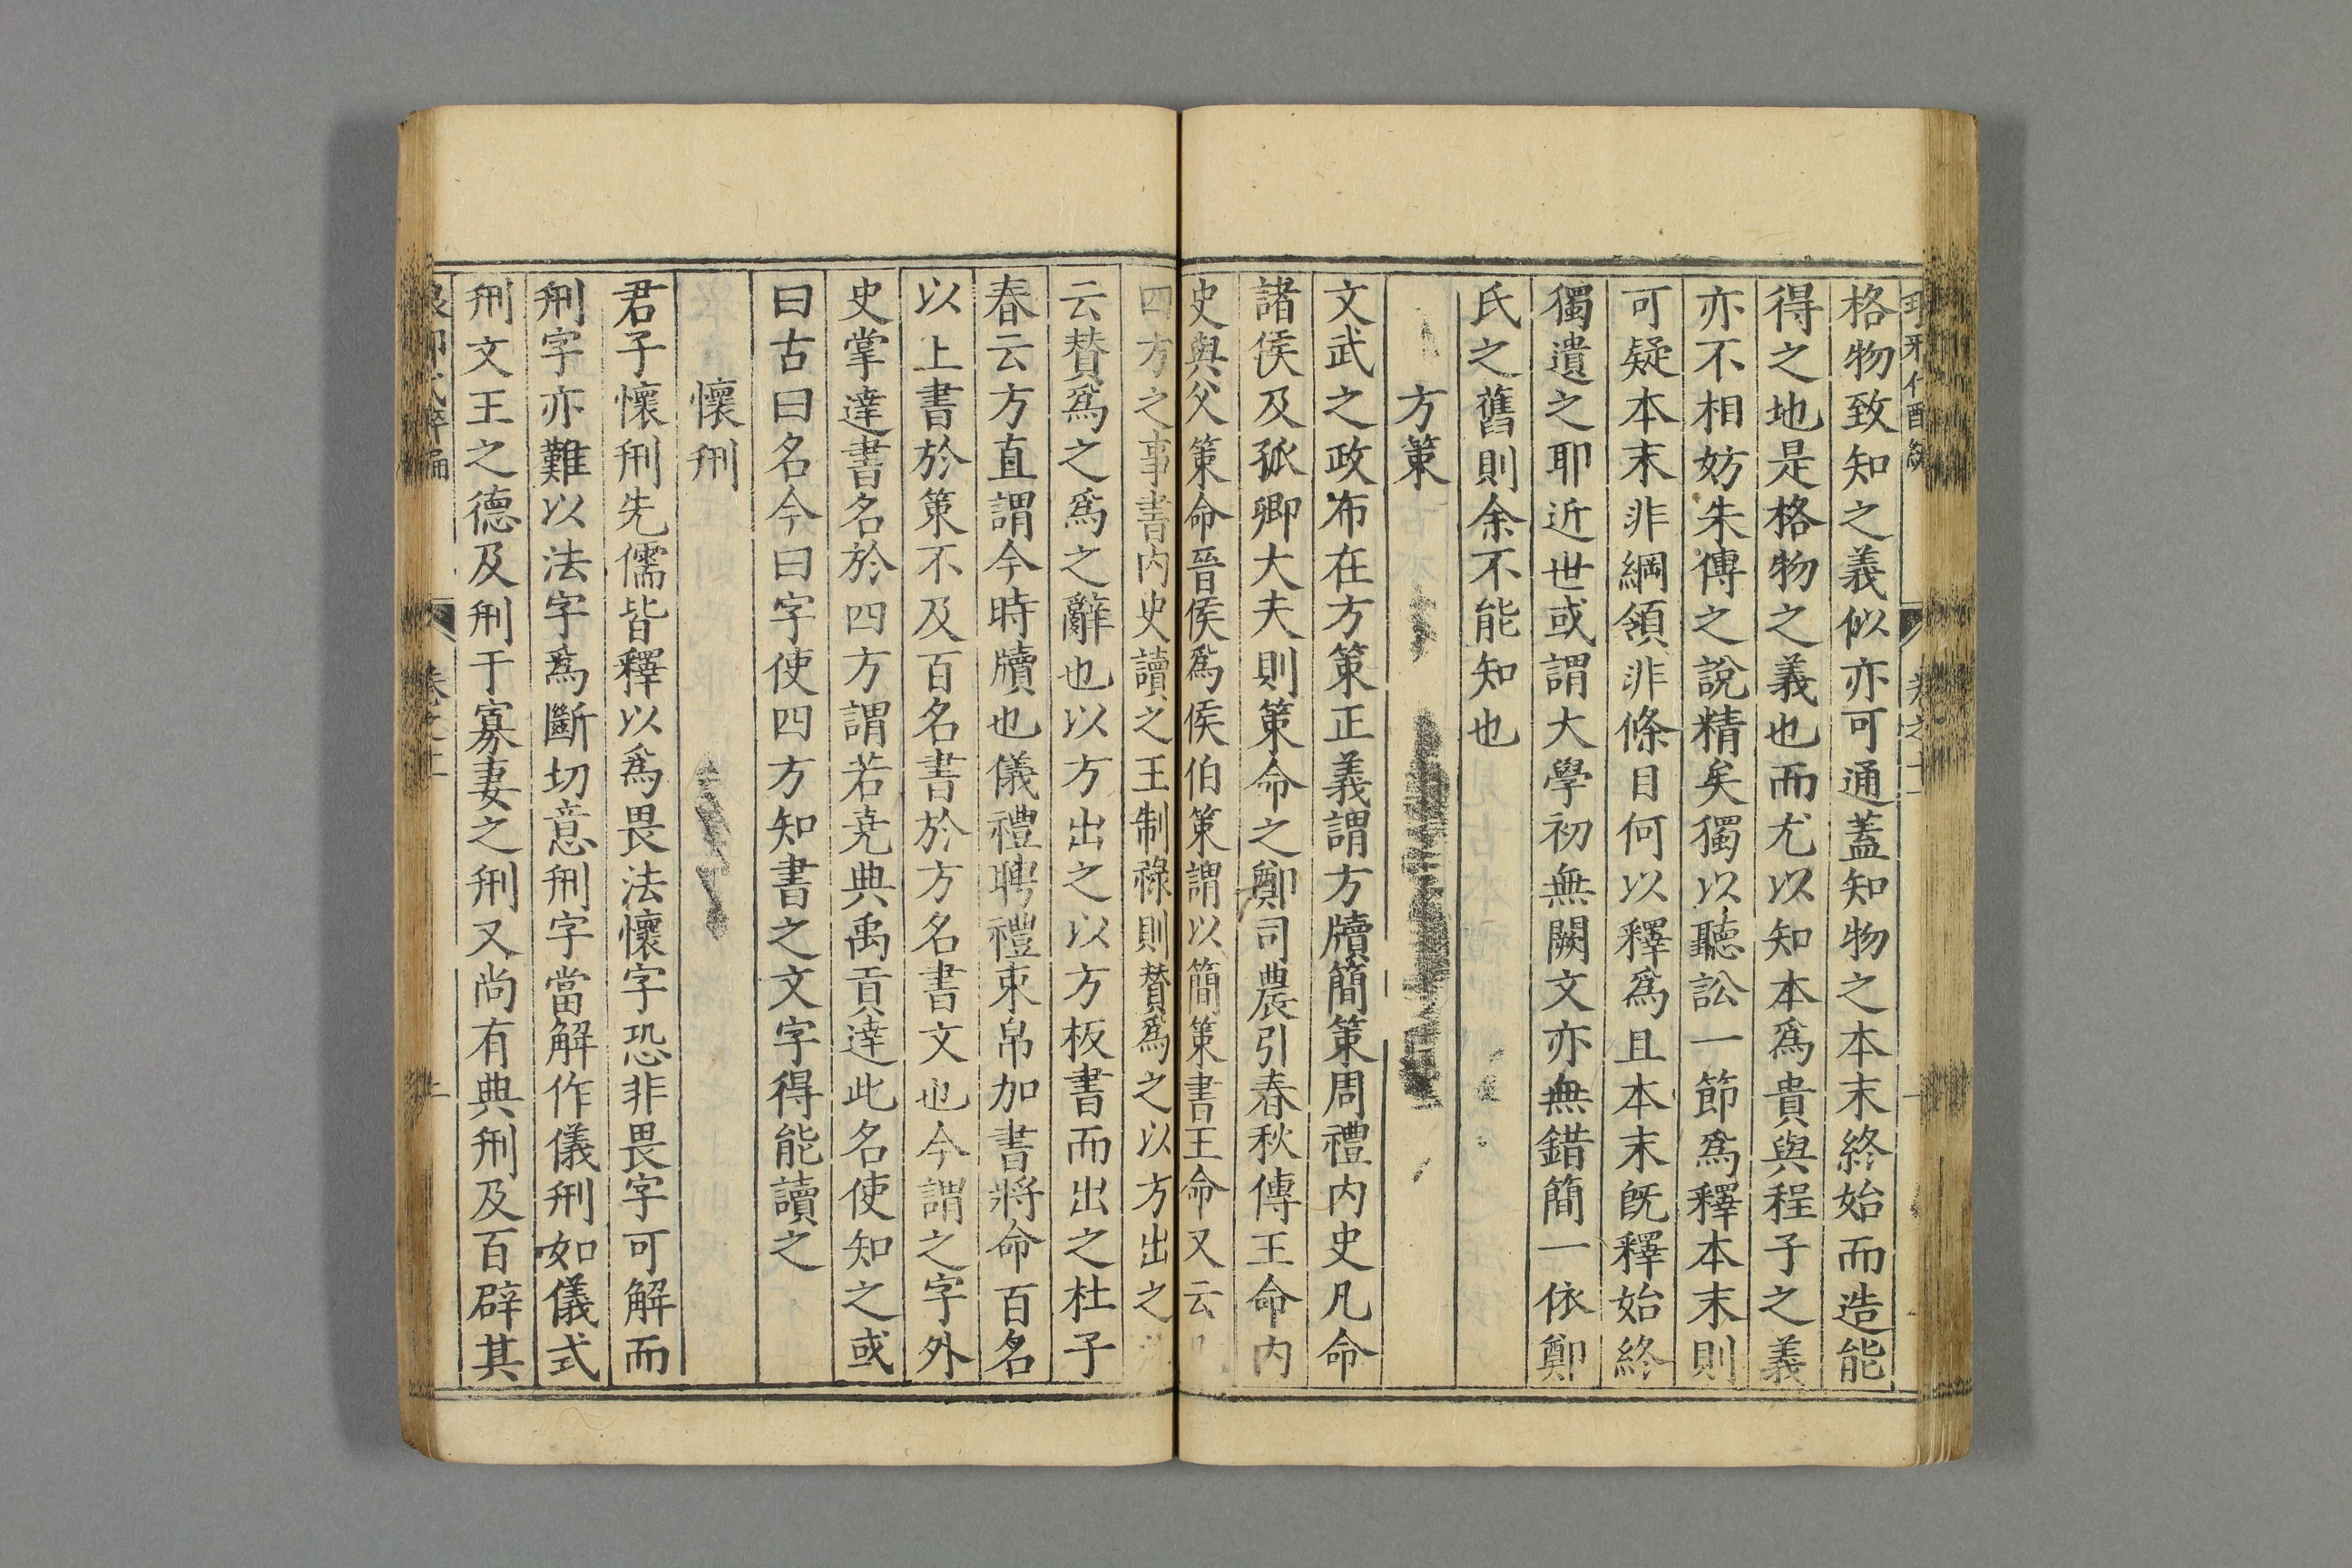 格物致知之義似亦可通蓋知物之本末終始而造能
得之地是格物之義也而尤以知本爲貴與程子之義
亦不相妨朱傳之說精矣獨以聽訟一節爲釋本末則
可疑本末非綱領非條目何以釋爲且本末旣釋始終
獨遺之耶近世或謂大學初無闕文亦無錯簡一依鄭
氏之舊則余不能知也
方策
文武之政布在方策正義謂方牘簡策周禮內史凡命
諸侯及孤卿大夫則策命之鄭司農引春秋傳王命內
史與父策命晉侯爲侯伯策謂以簡策書王命又云
四方之事書內史讀之王制祿則賛爲之以方出之
云賛爲之爲之辭也以方出之以方板書而出之杜子
春云方直謂今時牘也儀禮聘禮束帛加書將命百名
以上書於策不及百名書於方名書文也今謂之字外
史掌達書名於四方謂若堯典禹貢達此名使知之或
曰古曰名今曰字使四方知書之文字得能讀之
懷刑
君子懷刑先儒皆釋以爲畏法懷字恐非畏字可解而
刑字亦難以法字爲斷切意刑字當解作儀刑如儀式
刑文王之德及刑于寡妻之刑又尚有典刑及百辟其
卷之二